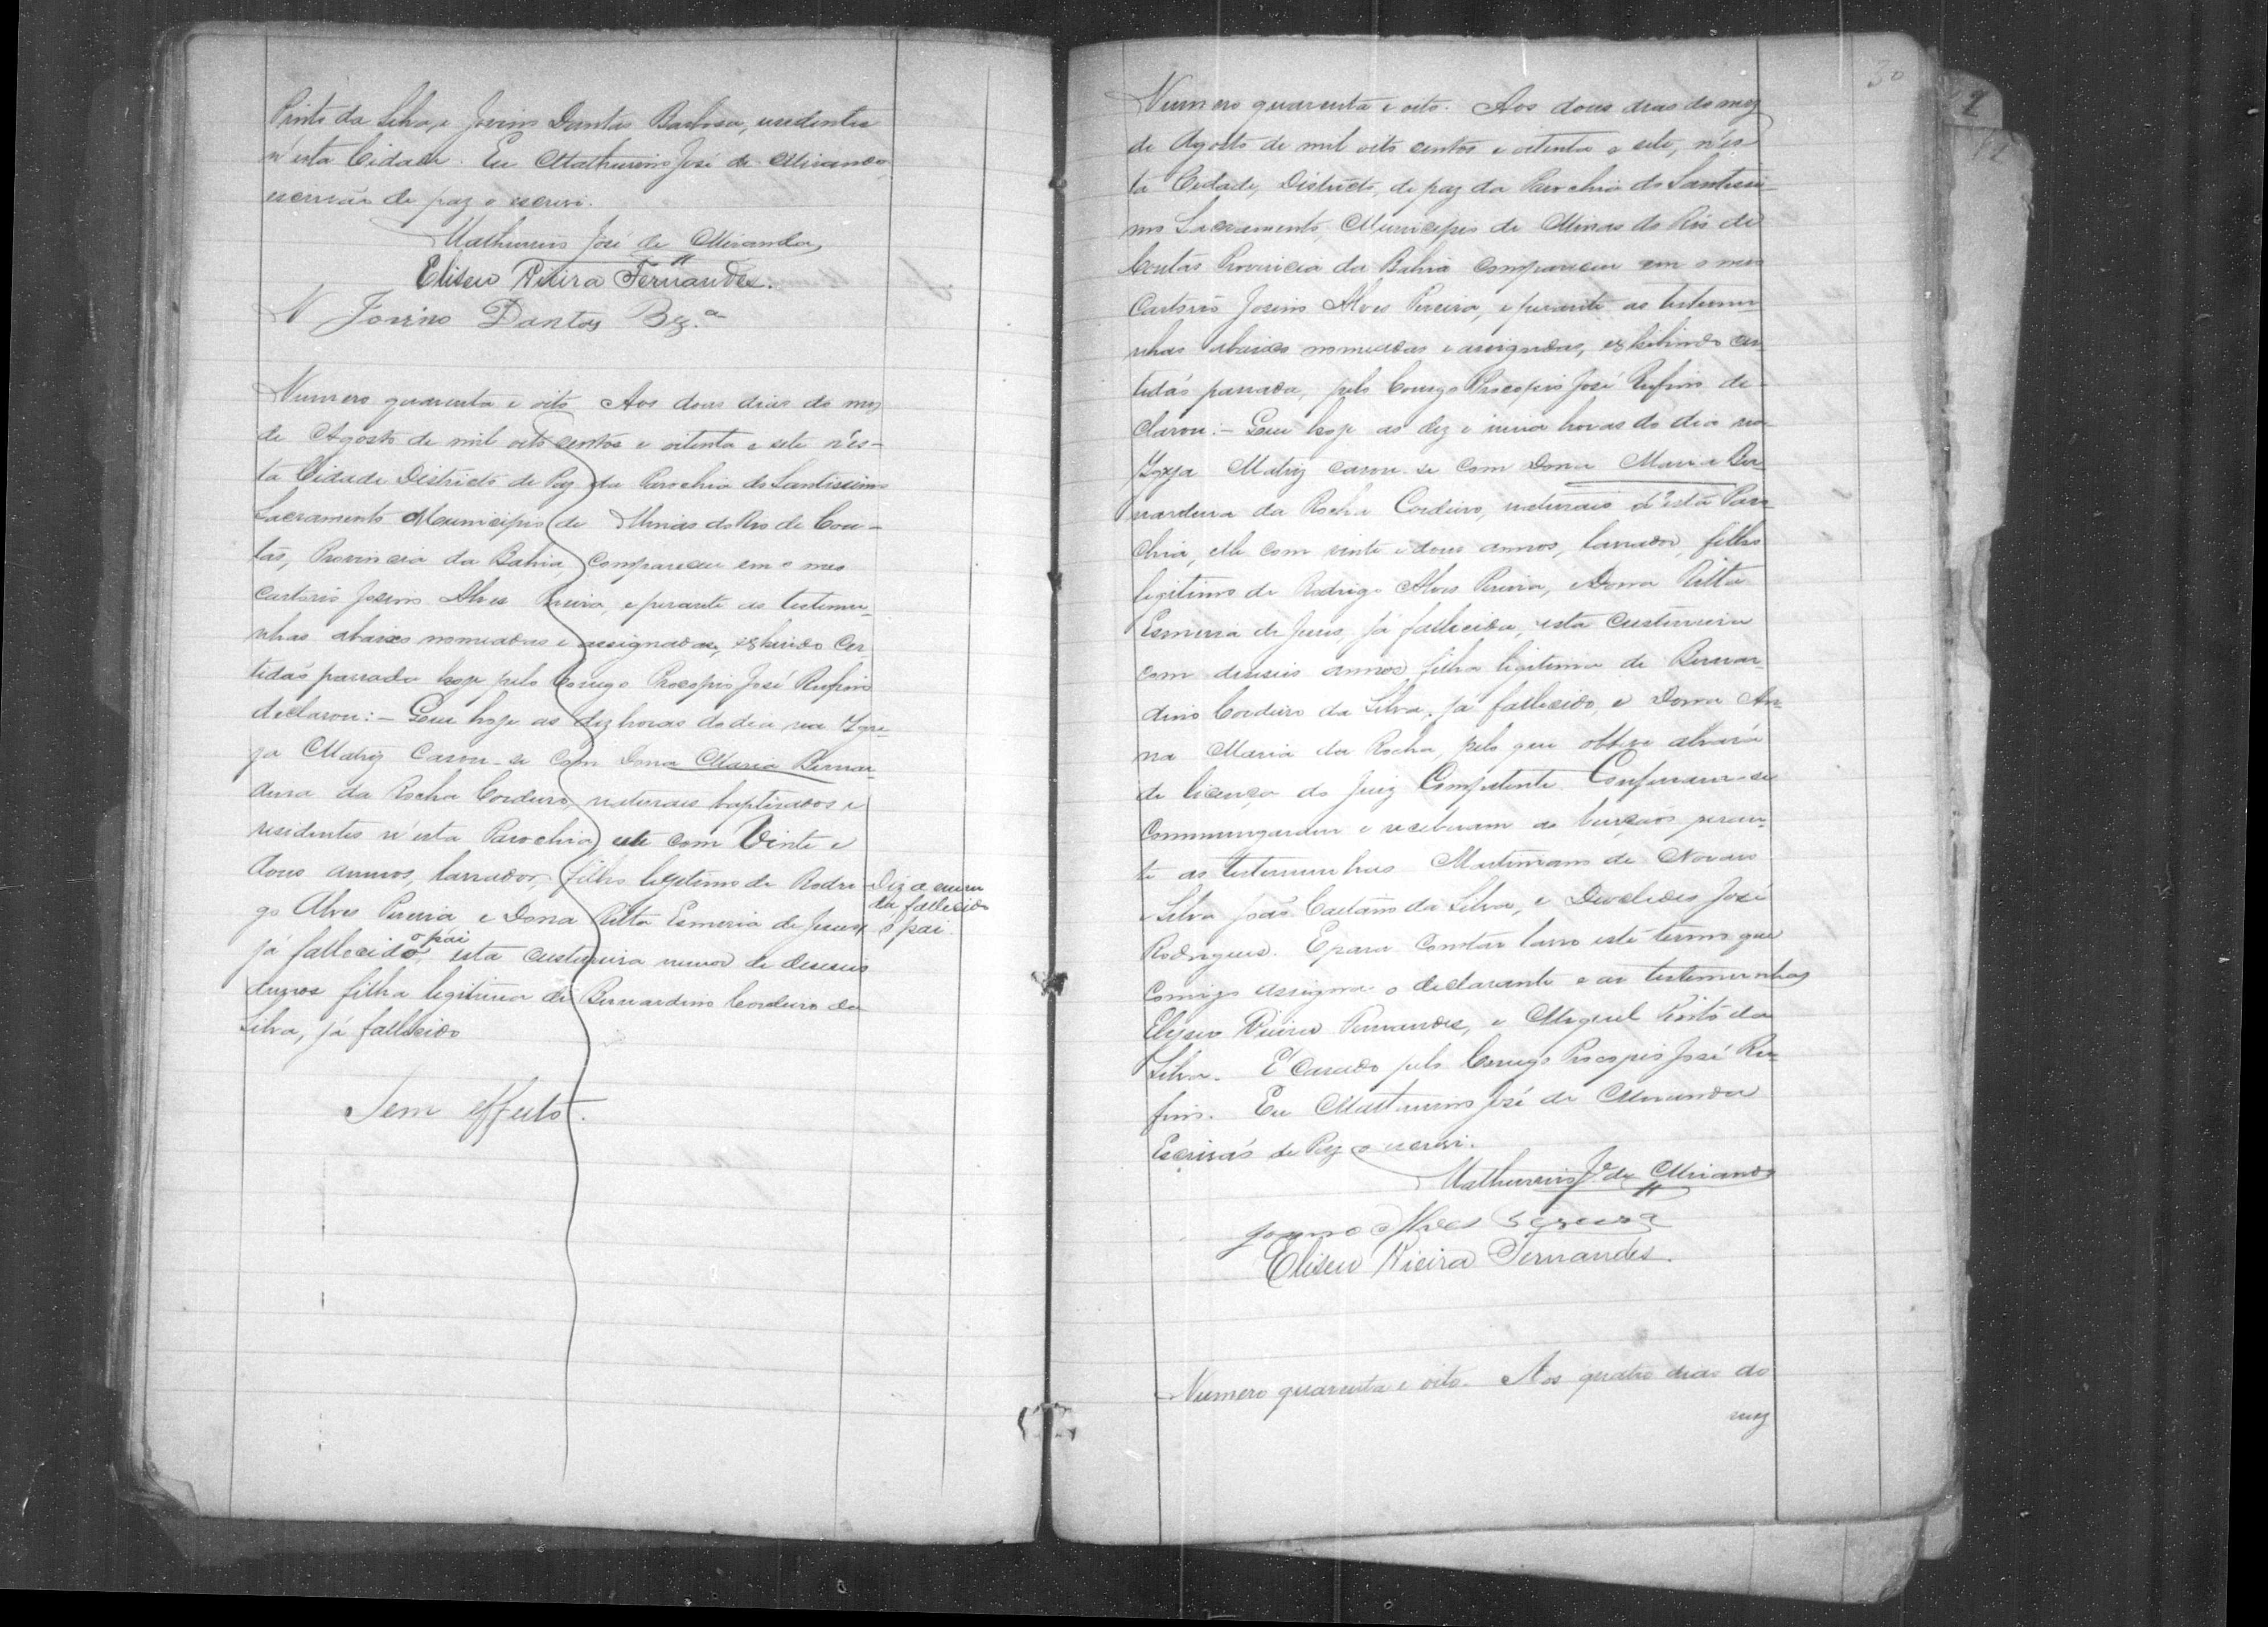 Pinto da Silva, e Jovino Dantas Barbosa, residentes
n'esta Cidade. Eu Mathurino José de Miranda
escrivão de paz o escrevi.
Mathurino José de Miranda
Eliseu Vieira Fernandes.
Jovino Dantas Bz.a
Numero quarenta e oito Aos dous dias do mez
de Agosto de mil oito centos e oitenta e sete n'es-
ta Cidade Districto de Paz da Parochia do Santissimo
Sacramento Municipio de Minas do Rio de Con-
tas, Provincia da Bahia, compareceu em o meo
cartorio Josino Alves Pereira, e perante as testemu-
nhas abaixo nomeadas e assignadas, exhibido Cer-
tidão passada hoje pelo Conego Procopio José Rufino
declarou:- Que hoje as dez horas do dia na Igre-
ja Matriz casou-se com Dona Maria Bernar-
dina da Rocha Cordeiro, naturaes baptisados e
residentes n'esta Parochia, elle com Vinte e
dous annos, lavrador, filho legitimo de Rodri-
go Alves Pereira e Dona Ritta Esmeria de Jesus,
já fallecido o pai, esta custureira menor de deseseis
annos filha legitima de Bernardino Cordeiro da
Silva, já fallecido
Diz a emen
da fallecido
o pai.
Sem effeito.
30
Numero quarenta e oito. Aos dous dias do mez
de Agosto de mil oito centos e oitenta e sete, n'es-
ta Cidade, Districto de paz da Parochia do Santissi-
mo Sacramento, Municipio de Minas do Rio de
Contas Provincia da Bahia compareceu em o meo
Cartorio Josino Alves Pereira, e perante as testemu-
nhas abaixo nomeadas e assignadas, exhibindo cer-
tidão passada, pelo Conego Procopio José Rufino de-
clarou:- Que hoje as dez e meia horas do dia na
Igreja Matriz casou-se com Dona Maria Ber-
nardina da Rocha Cordeiro, naturais d'esta Paro-
chia, elle com vinte e dous annos, lavrador, filho
legitimo de Rodrigo Alves Pereira, e Dona Ritta
Esmeria de Jesus, já fallecida, esta custureira
com deseseis annos filha legitima de Bernar-
dino Cordeiro da Silva, já fallecido, e Dona An-
na Maria da Rocha, pelo que obteve alvará
de licença do Juiz Competente. Confessaram-se
Commungaram e receberam as bençãos peran-
te as testemunhas Martiniano de Novais
e Silva João Caetano da Silva, e Deoclides José
Rodrigues. E para constar lavro este termo que
Comigo assigna o declarante e as testemunhas
Elyseu Vieira Fernandes, e Miguel Pinto da
Silva. E Casado pelo Conego Procopio José Ru-
fino. Eu Mathurino José de Miranda
Escrivão de Paz o escrevi.
Mathurino J.e de Miranda
Josino Alves Pereira
Eliseu Vieira Fernandes.
Numero quarenta e oito. Aos quatro dias do
mez